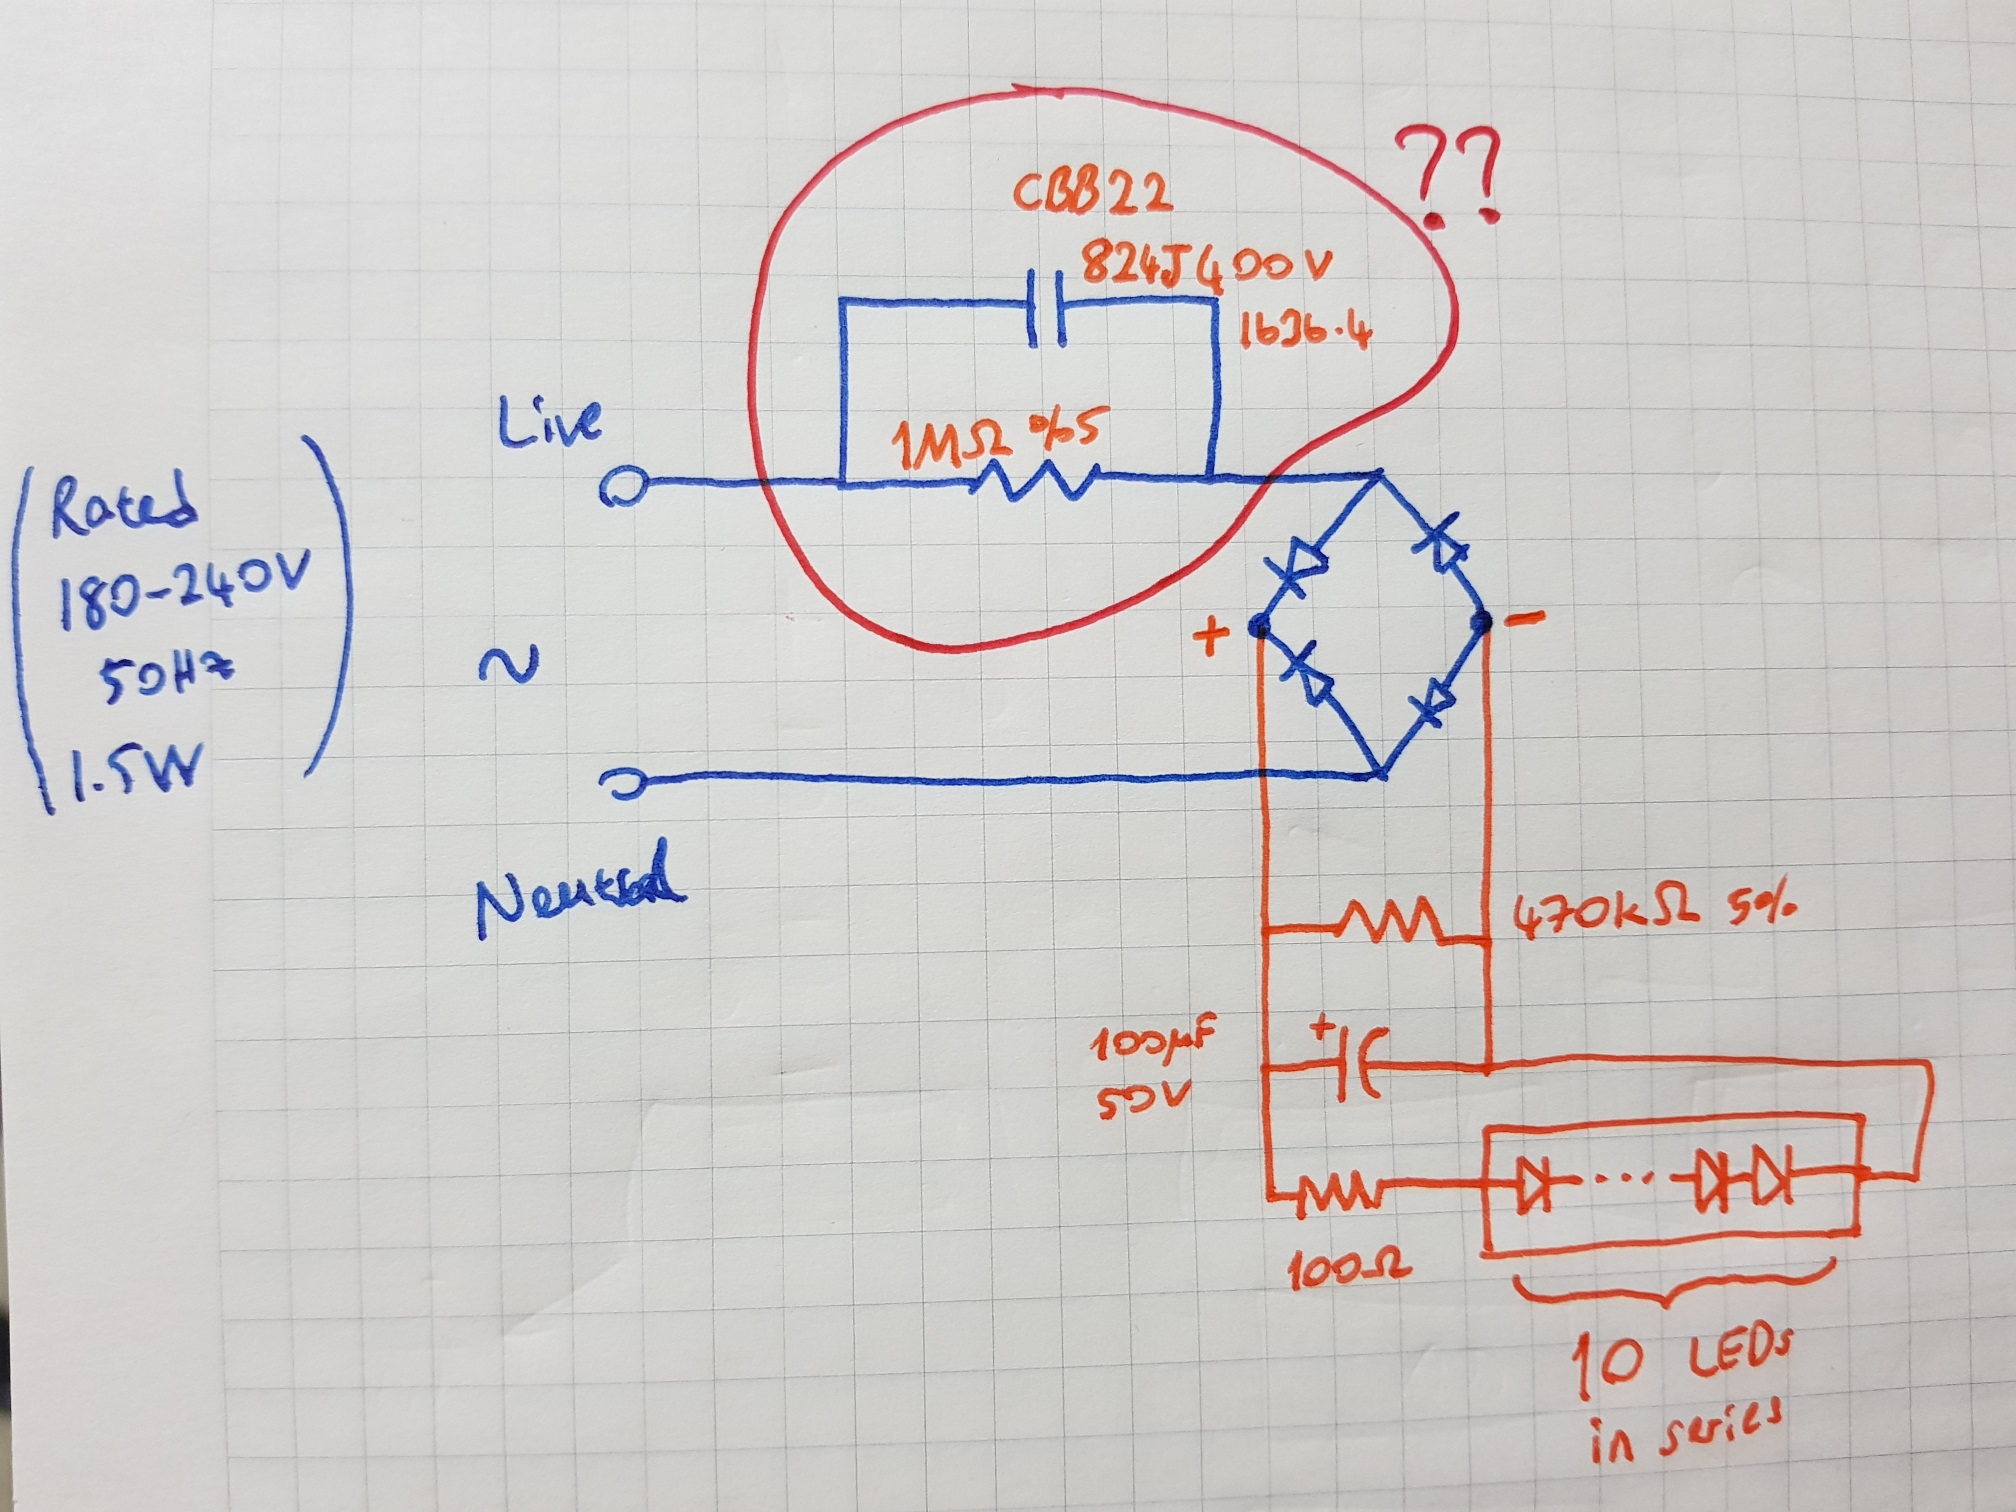 ??
CBB22
824J400V
1636.4
Live
1MΩ %5
Rated
180-240V
50Hz
1.5W
~
+
-
Neutral
470kΩ 5%
100µF
50V
+
100Ω
...
10 LEDs
in series